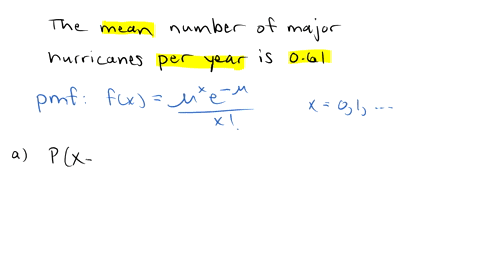 The mean number of major
hurricanes per year is 0.61
pmf: f(x) = μ^x e^-μ / x!   x = 0,1, ...
a) P(x-